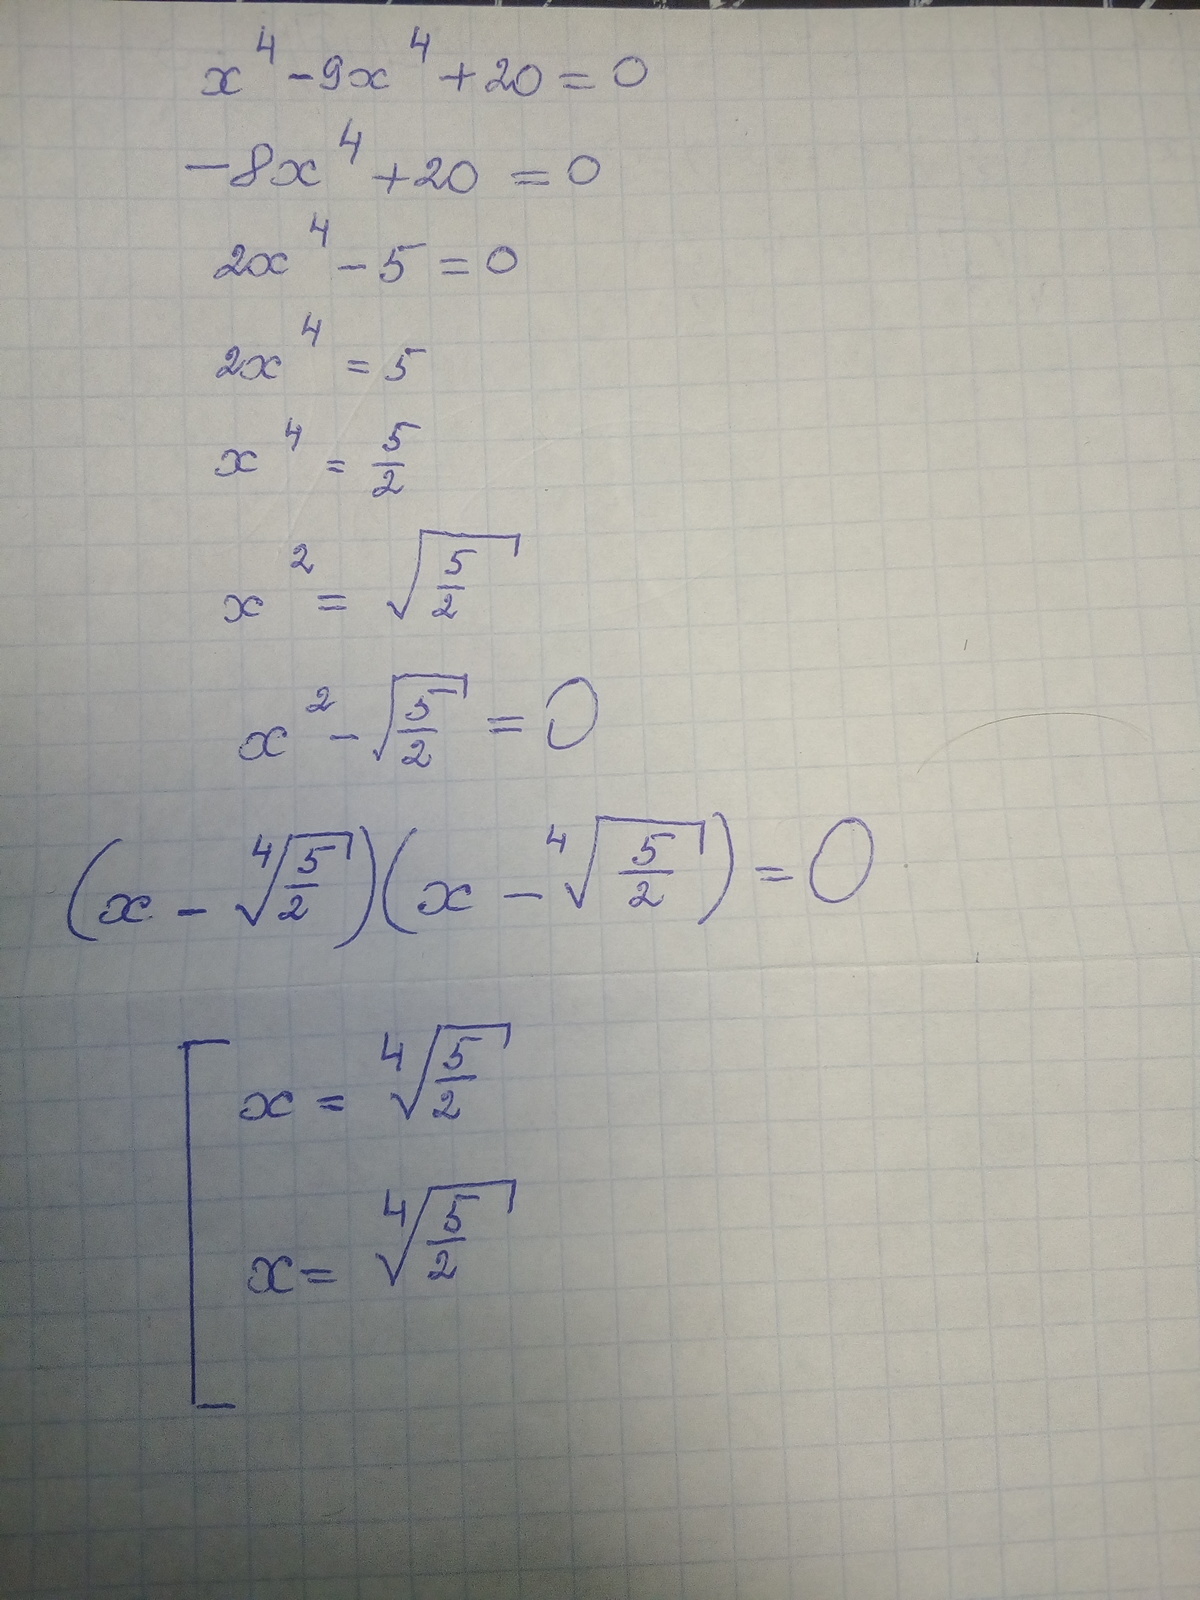 x⁴ - 9x⁴ + 20 = 0
-8x⁴ + 20 = 0
2x⁴ - 5 = 0
2x⁴ = 5
x⁴ = 5/2
x² = √(5/2)
x² - √(5/2) = 0
(x - ⁴√(5/2))(x - ⁴√(5/2)) = 0
[ x = ⁴√(5/2)
x = ⁴√(5/2)